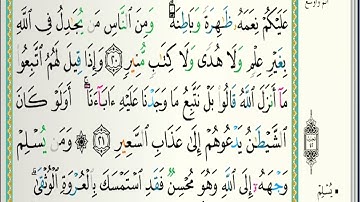 عَلَيْكُمْ نِعَمَهُۥ ظَٰهِرَةً وَبَاطِنَةً ۗ وَمِنَ ٱلنَّاسِ مَن يُجَٰدِلُ فِى ٱللَّهِ
بِغَيْرِ عِلْمٍ وَلَا هُدًى وَلَا كِتَٰبٍ مُّنِيرٍ ٢٠ وَإِذَا قِيلَ لَهُمُ ٱتَّبِعُوا۟
مَآ أَنزَلَ ٱللَّهُ قَالُوا۟ بَلْ نَتَّبِعُ مَا وَجَدْنَا عَلَيْهِ ءَابَآءَنَآ ۚ أَوَلَوْ كَانَ
ٱلشَّيْطَٰنُ يَدْعُوهُمْ إِلَىٰ عَذَابِ ٱلسَّعِيرِ ٢١ وَمَن يُسْلِمْ
وَجْهَهُۥٓ إِلَى ٱللَّهِ وَهُوَ مُحْسِنٌ فَقَدِ ٱسْتَمْسَكَ بِٱلْعُرْوَةِ ٱلْوُثْقَىٰ ۗ
يُسْلِمْ